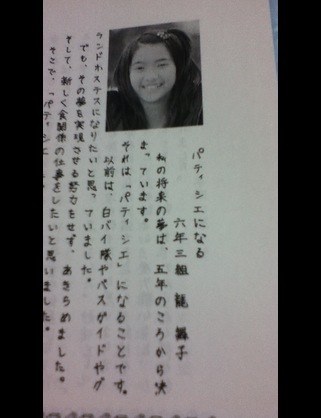 パティシエになる
六年三組 龍 舞子
私の将来の夢は、五年のころから決
まっています。
それは「パティシエ」になることです。
以前は、白バイ隊やバスガイドやグ
ランドホステスになりたいと思っていました。
でも、その夢を実現させる努力をせず、あきらめました。
そして、新しく食関係の仕事をしたいと思いました。
そこで、「パティシエ